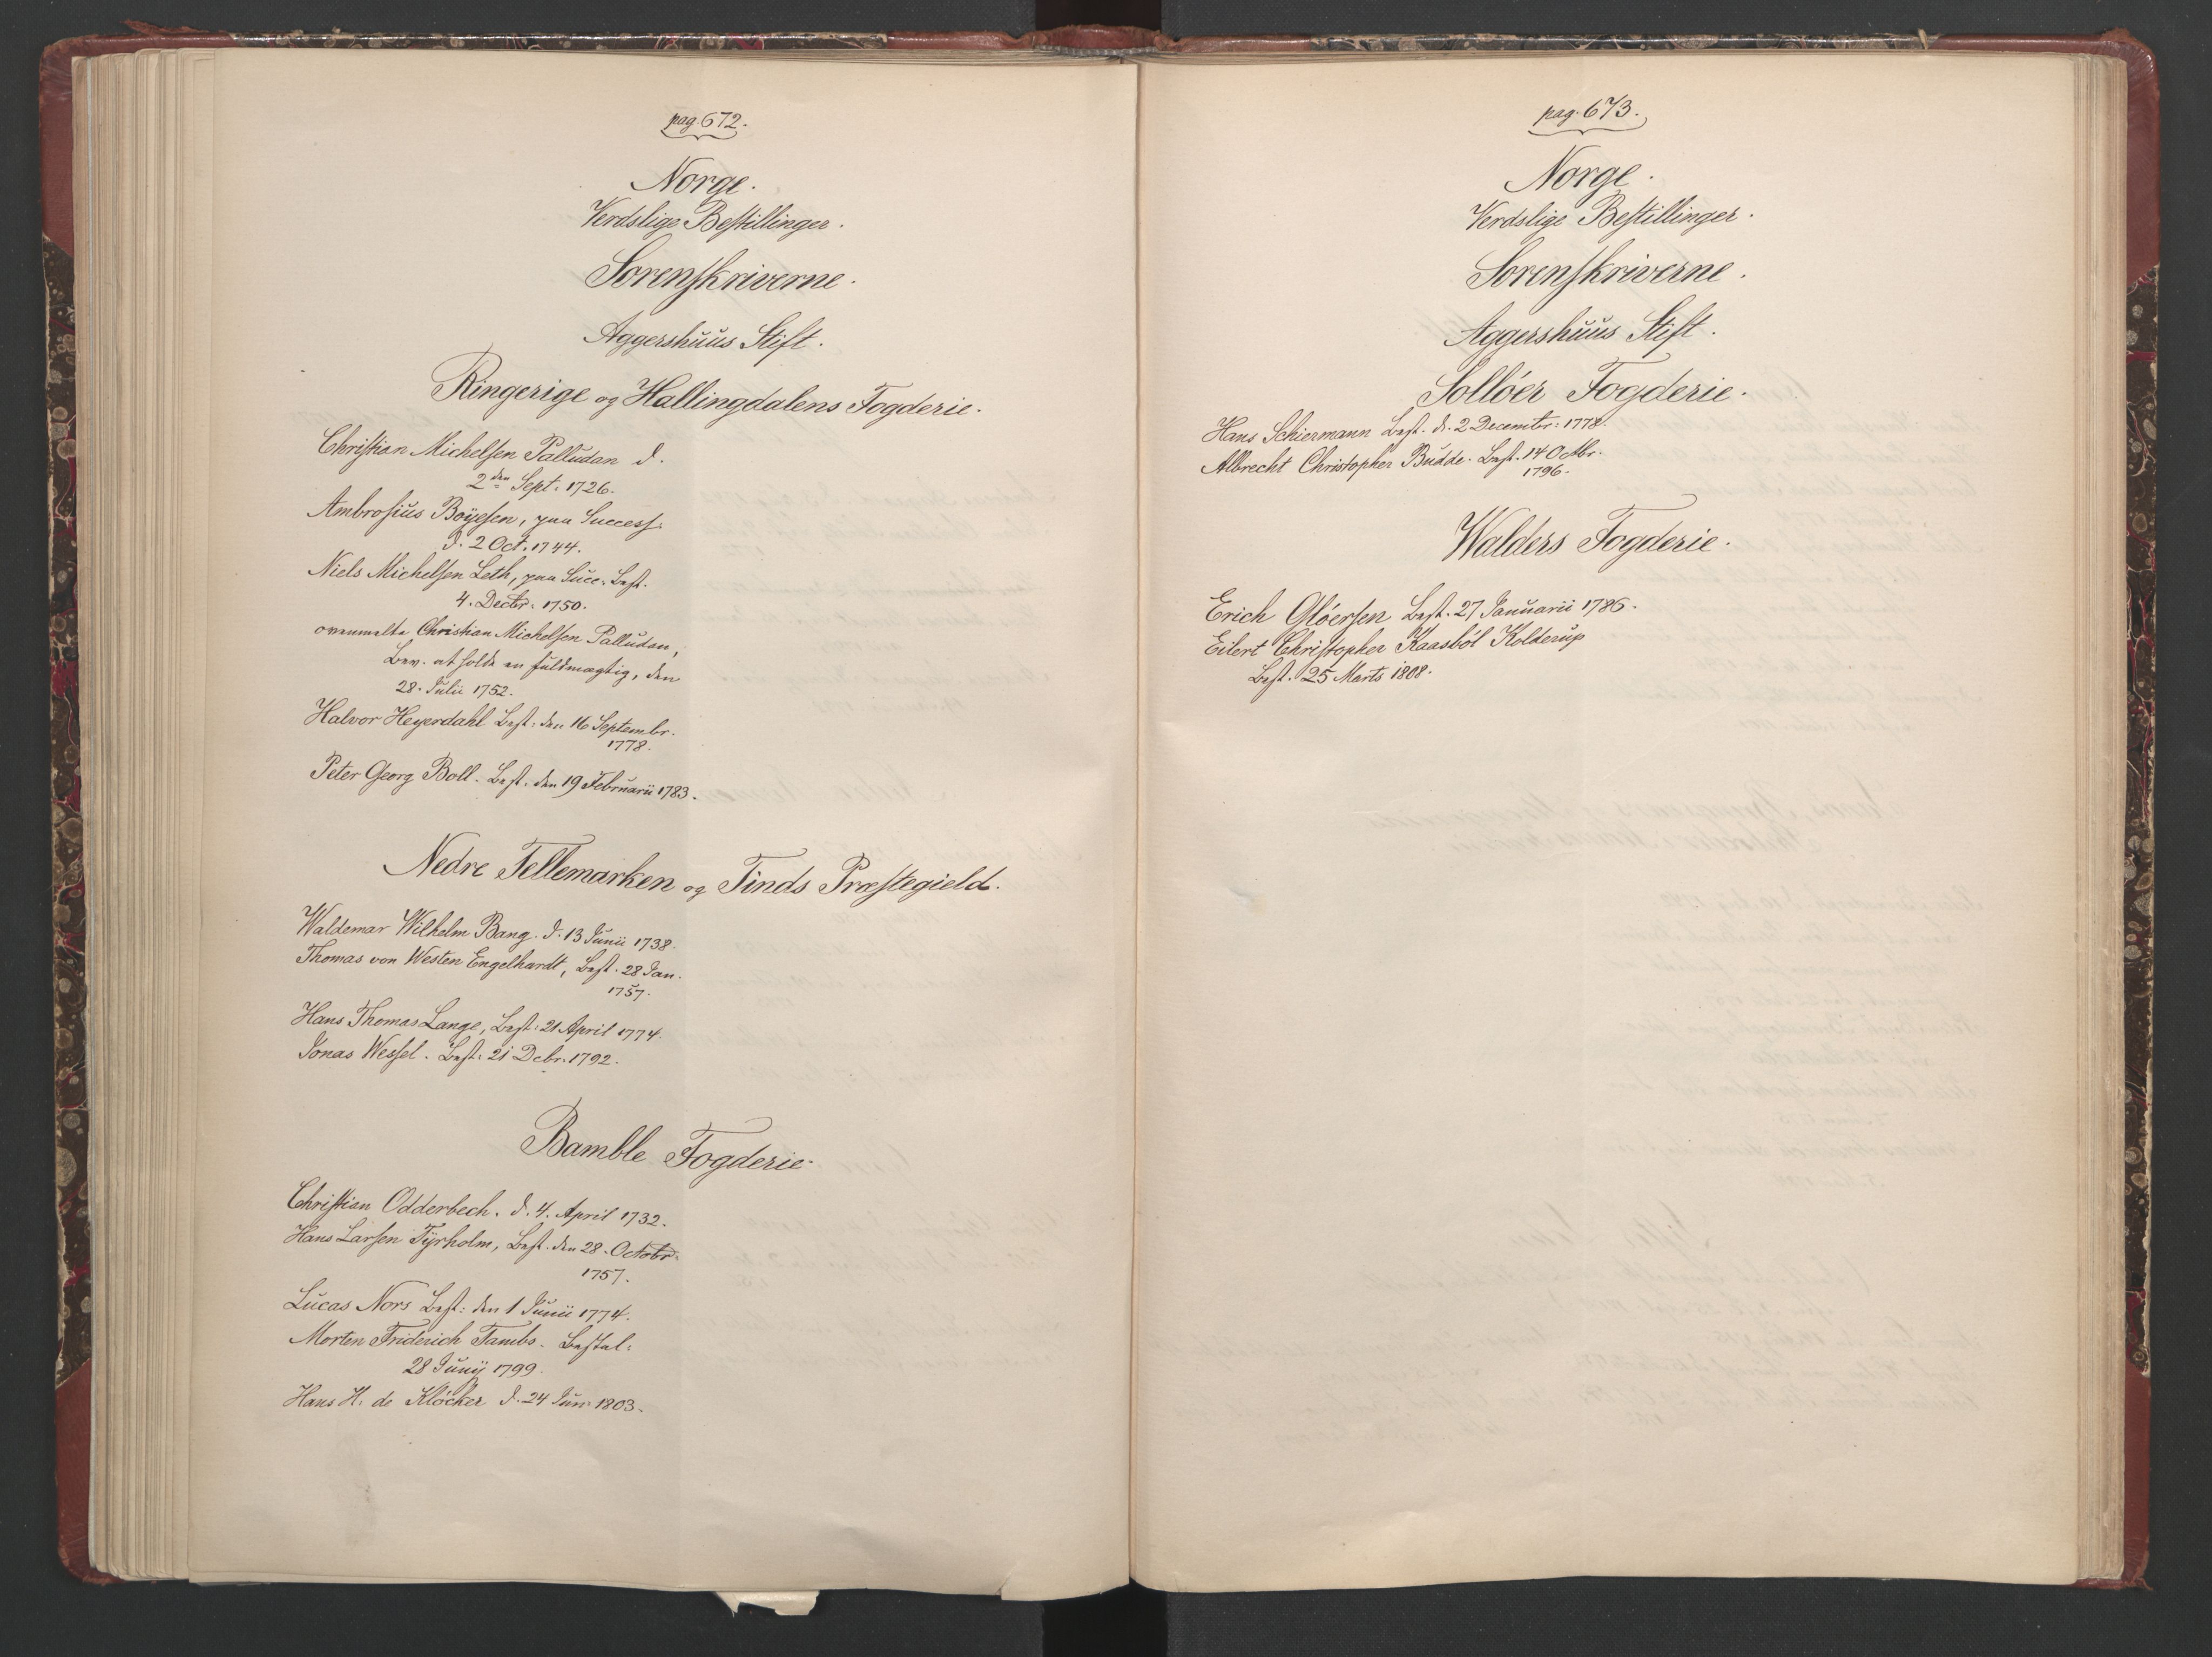 pag. 672.
Norge.
Verdslige Bestillinger.
Sorenskriverne.
Aggershuus Stift.
Ringerige og Hallingdalens Fogderie.
Christian Michelsen Palludan d.
2den Sept. 1726.
Ambrosius Boÿesen, paa Success.
d. 2 Oct. 1744.
Niels Michelsen Leth, paa Succ. Best.
4. Decbr. 1750.
ovenmelte Christian Michelsen Palludan,
Bev. at holde en fuldmægtig, den
28. Julii 1752.
Halvor Heyerdahl Best: den 16 Septembr.
1778.
Peter Georg Boll. Best. den 19 Februarii 1783.
Nedre Tellemarken og Tinds Præstegield.
Waldemar Wilhelm Bang. d. 13 Junii 1738.
Thomas von Westen Engelhardt, Best. 28 Jan.
1757.
Hans Thomas Lange, Best: 21 April 1774.
Jonas Wessel. Best: 21 Debr. 1792.
Bamble Fogderie.
Christian Odderbech. d. 4. April 1732.
Hans Larsen Tÿrholm, Best. den 28. Octobr.
1757.
Lucas Nors Best: den 1 Junii 1774.
Morten Friderich Tambs. Bestal:
28 Junij 1799.
Hans H. de Klöcker d. 24 Jun: 1803.
pag. 673.
Norge.
Verdslige Bestillinger.
Sorenskriverne.
Aggershuus Stift.
Sollöer Fogderie.
Hans Schiermann Best. d. 2 Decembr: 1778.
Albrecht Christopher Budde. Best. 14 Octbr.
1796.
Walders Fogderie.
Erich Glöersen Best. 27 Januarii 1786.
Eilert Christopher Kaasböl Kolderup
Best. 25 Marts 1808.